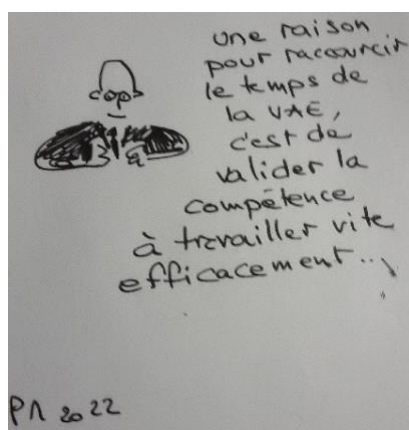 une raison
pour raccourcir
le temps de
la VAE,
c'est de
valider la
compétence
à travailler vite
efficacement...
PM 2022